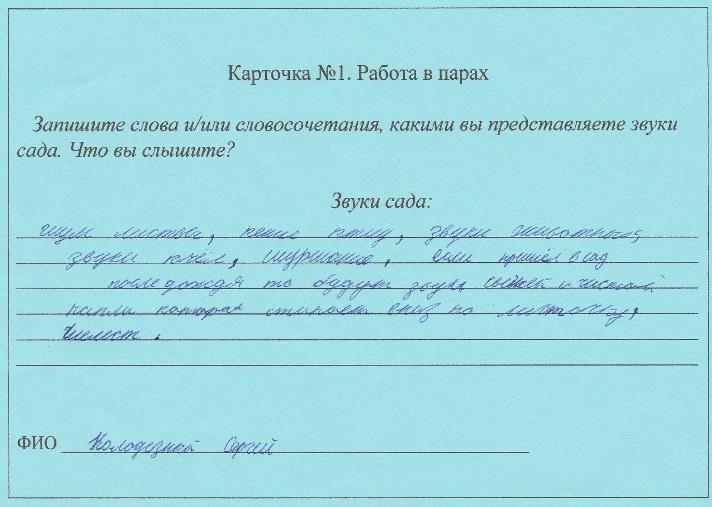 Карточка №1. Работа в парах
Запишите слова и/или словосочетания, какими вы представляете звуки
сада. Что вы слышите?
Звуки сада:
шум листвы, пение птиц, звуки животных,
звуки пчёл, шуршание, если пришёл в сад
после дождя то будут звуки свежей и чистой
капли которая стикает вниз по листочку,
шелест.
ФИО Колодезный Сергей